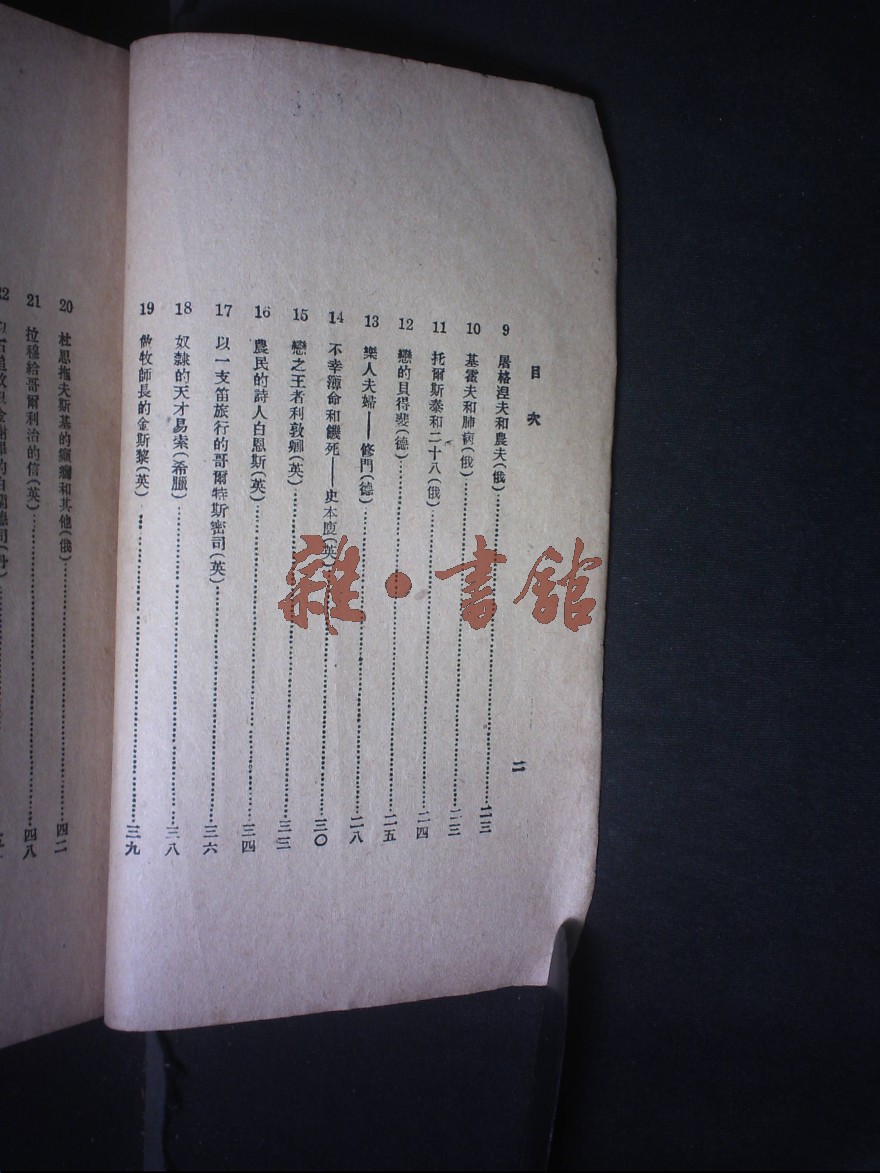 目次
二
9 屠格涅夫和農夫(俄)……二三
10 基霍夫和肺病(俄)……二三
11 托爾斯泰和二十八(俄)……二四
12 戀的貝得斐(德)……二五
13 樂人夫婦——修門(德)……二八
14 不幸薄命和饑死——史本度(英)……三〇
15 戀之王者利敦卿(英)……三三
16 農民的詩人白恩斯(英)……三四
17 以一支笛旅行的哥爾特斯密司(英)……三六
18 奴隸的天才易索(希臘)……三八
19 做牧師長的金斯黎(英)……三九
20 杜思拖夫斯基的癲癇和其他(俄)……四二
21 拉穆給哥爾利治的信(英)……四八
雜·書館